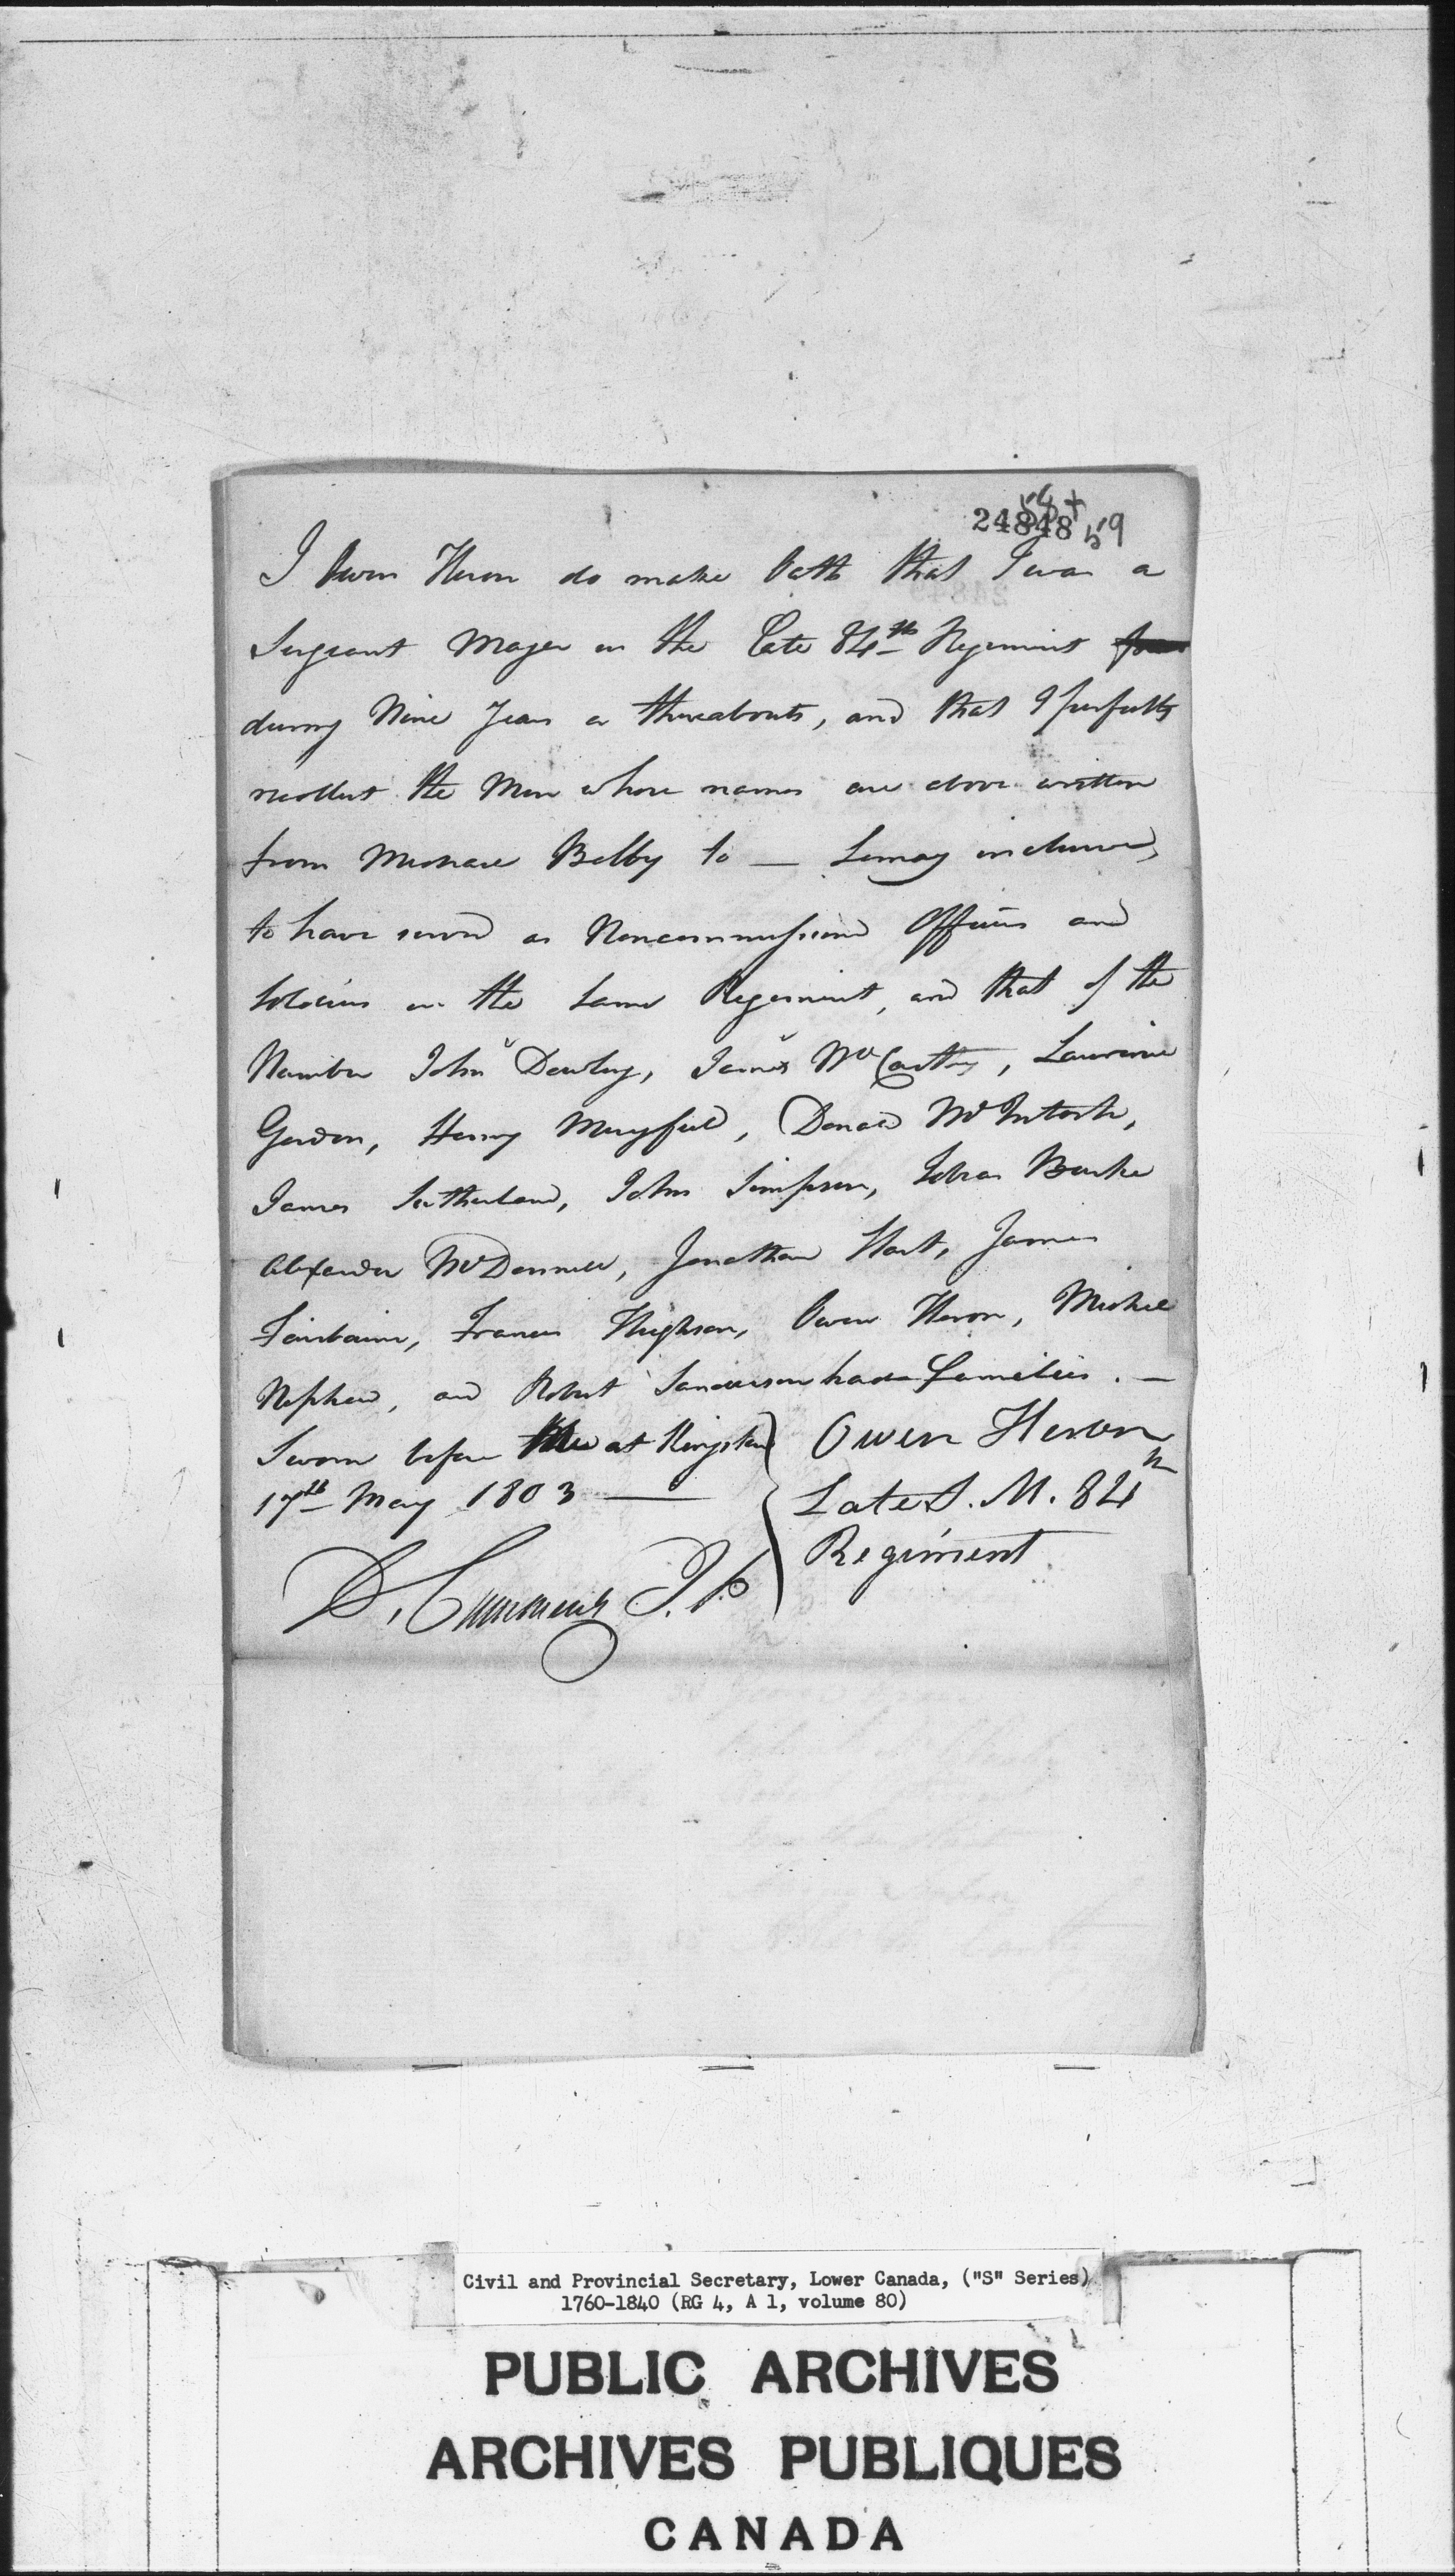 24848
59
I Owen Heron do make Oath that I was a
Sergeant Major in the Late 84th Regiment
during Nine Years or thereabouts, and that I perfectly
recollect the Men whose names are above written
from Michael Belby to — Lemay inclusive,
to have served as Noncommissioned Officers and
Soldiers in the Same Regiment, and that of the
Number John Dewley, James McCarthy, Laurence
Gordon, Henry Mayfield, Donald McIntosh,
James Sutherland, John Simpson, Tobias Burke
Alexander McDonnell, Jonathan Hart, James
Fairbairn, Francis Hughson, Owen Heron, Michel
Nephew, and Robert Sanderson had Families. —
Sworn before Me at Kingston
17th May 1803 —
Owen Heron
Late S. M. 84th
Regiment
J.P.
Civil and Provincial Secretary, Lower Canada, ("S" Series)
1760-1840 (RG 4, A 1, volume 80)
PUBLIC ARCHIVES
ARCHIVES PUBLIQUES
CANADA